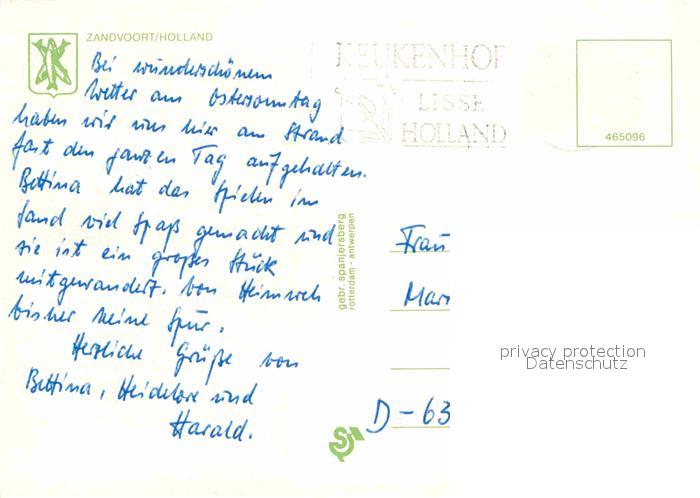 ZANDVOORT/HOLLAND
Bei wunderschönem
Wetter am Ostersonntag
haben wir uns hier am Strand
fast den ganzen Tag aufgehalten.
Bettina hat das Spielen im
Sand viel Spaß gemacht und
sie ist ein großes Stück
mitgewandert. Von Heimweh
bisher keine Spur.
Herzliche Grüße von
Bettina, Heidelore und
Harald.
KEUKENHOF
LISSE
HOLLAND
465096
gebr. spanjersberg
rotterdam - antwerpen
Frau
D-63
privacy protection
Datenschutz